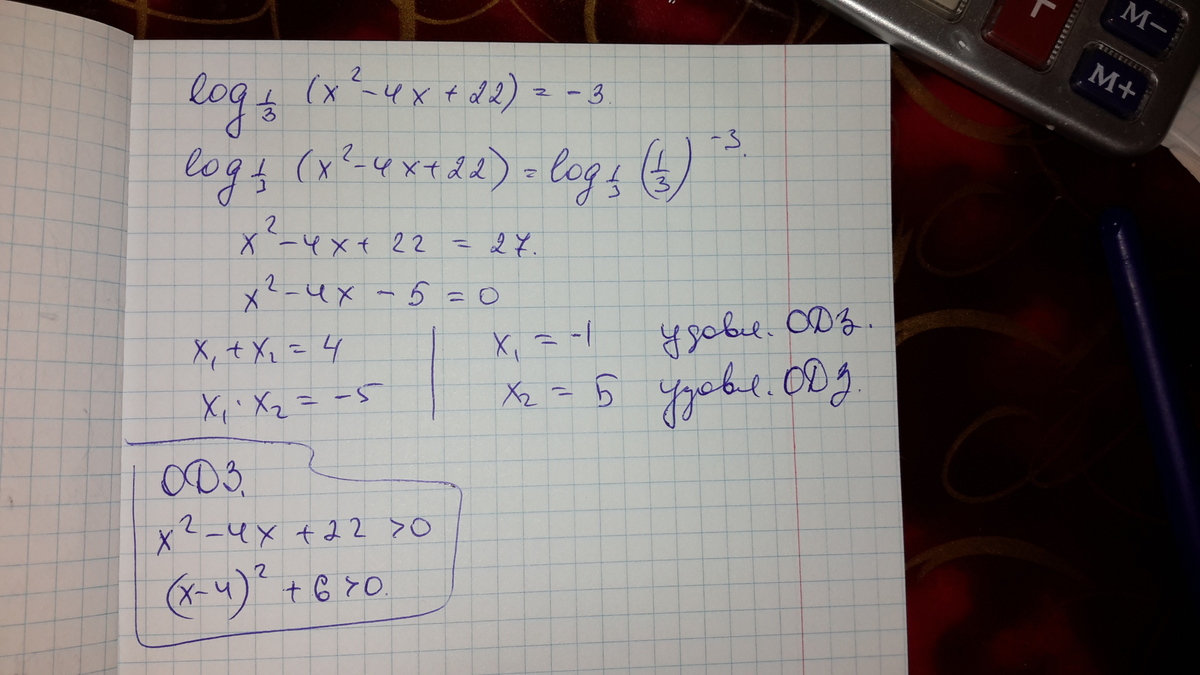 M-
M+
log_{1/3} (x² - 4x + 22) = -3.
log_{1/3} (x² - 4x + 22) = log_{1/3} (1/3)^{-3}.
x² - 4x + 22 = 27.
x² - 4x - 5 = 0
x₁ + x₂ = 4 | x₁ = -1 удовл. ОДЗ.
x₁ · x₂ = -5 | x₂ = 5 удовл. ОДЗ.
ОДЗ.
x² - 4x + 22 > 0
(x-4)² + 6 > 0.